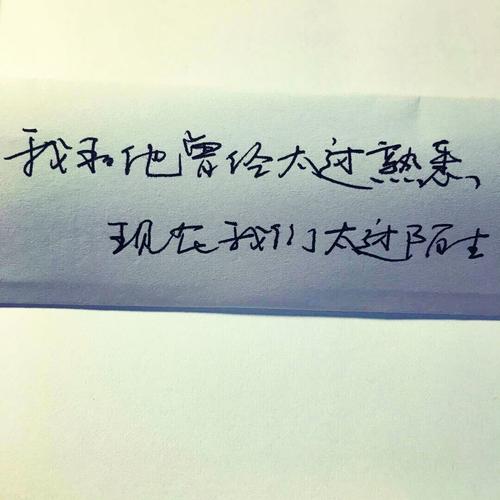 我和他曾经太过熟悉,
现在我们太过陌生